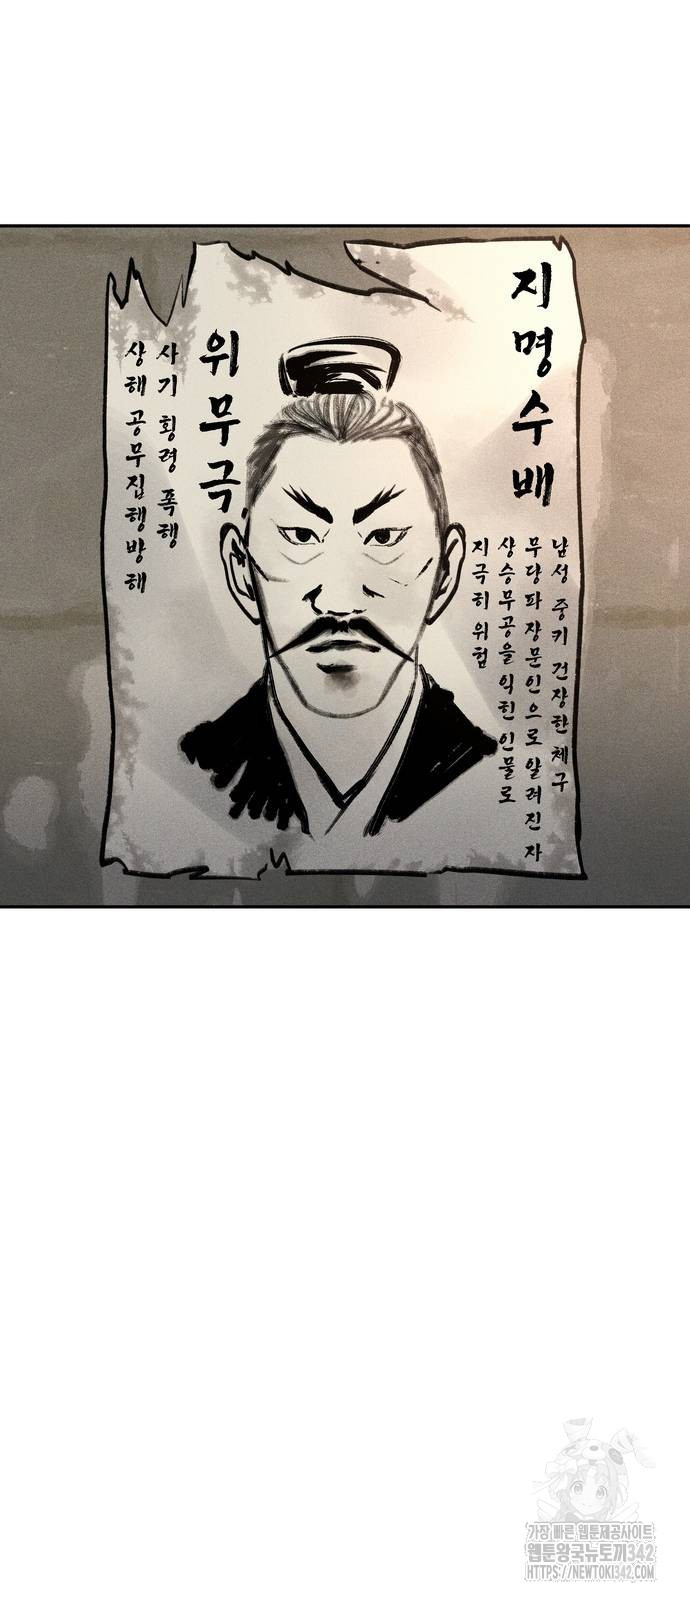 지명수배
남성 중키 건장한 체구
무당파 장문인으로 알려진 자
상승무공을 익힌 인물로
지극히 위험
위무극
사기 횡령 폭행
상해 공무집행방해
가장 빠른 웹툰제공사이트
웹툰왕국뉴토끼342
HTTPS://NEWTOKI342.COM